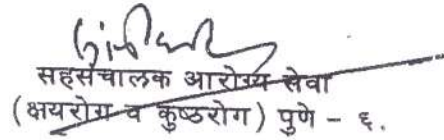 सहसंचालक आरोग्य सेवा
(क्षयरोग व कुष्ठरोग) पुणे - ६.